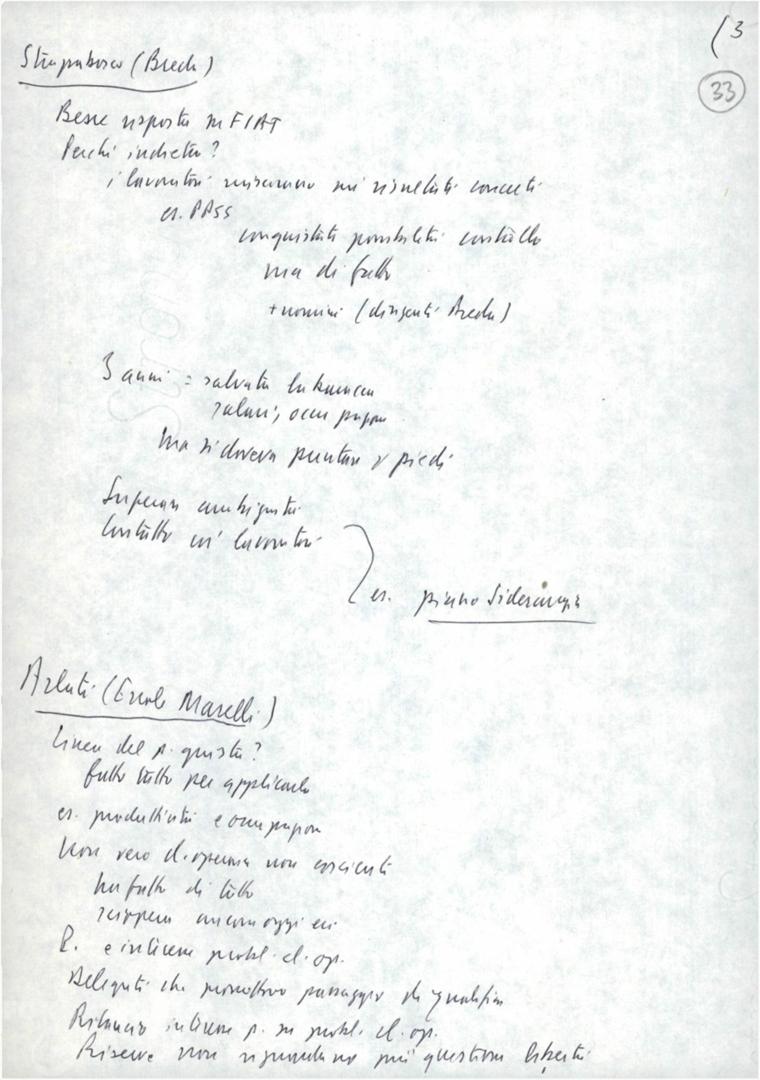 (3
33
(Breda)
Bene risposta su FIAT
Perché indietro?
i lavoratori misurano sui risultati concreti
es. PPSS
conquistate possibilità controllo
ma di fatto
+ nomine (dirigenti Breda)
3 anni = salvata
salari, occupazione
ma si doveva puntare + piedi
Superare ambiguità
Contatto coi lavoratori
es. piano Siderurgia
(Ercole Marelli)
Linea del p. giusta?
fatto tutto per applicarla
es. produttività e occupazione
Non vero cl. operaia non cosciente
ha fatto di tutto
sciopera ancora oggi ecc
P. e insieme probl. cl. op.
Delegati che passaggio di qualifica
Rilancio insieme p. su probl. cl. op.
Riserve non riguardano più questione